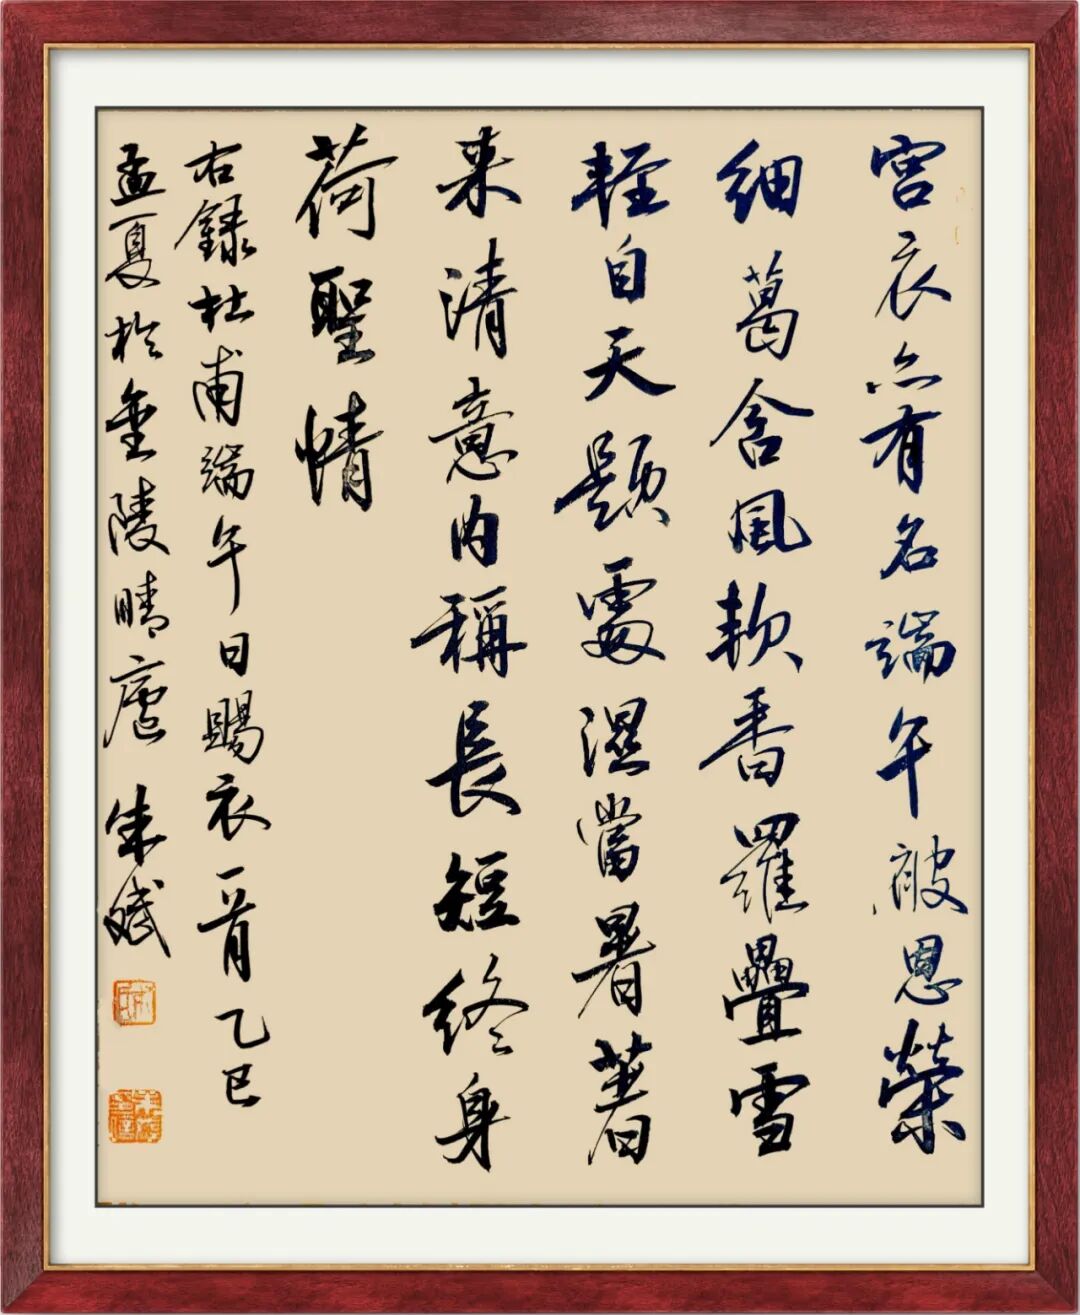 宫衣亦有名端午被恩榮
細葛含風軟香羅疊雪
輕自天題處濕當暑著
来清意内稱長短終身
荷聖情
右録杜甫端午日賜衣一首乙巳
孟夏於金陵晴廬朱斌